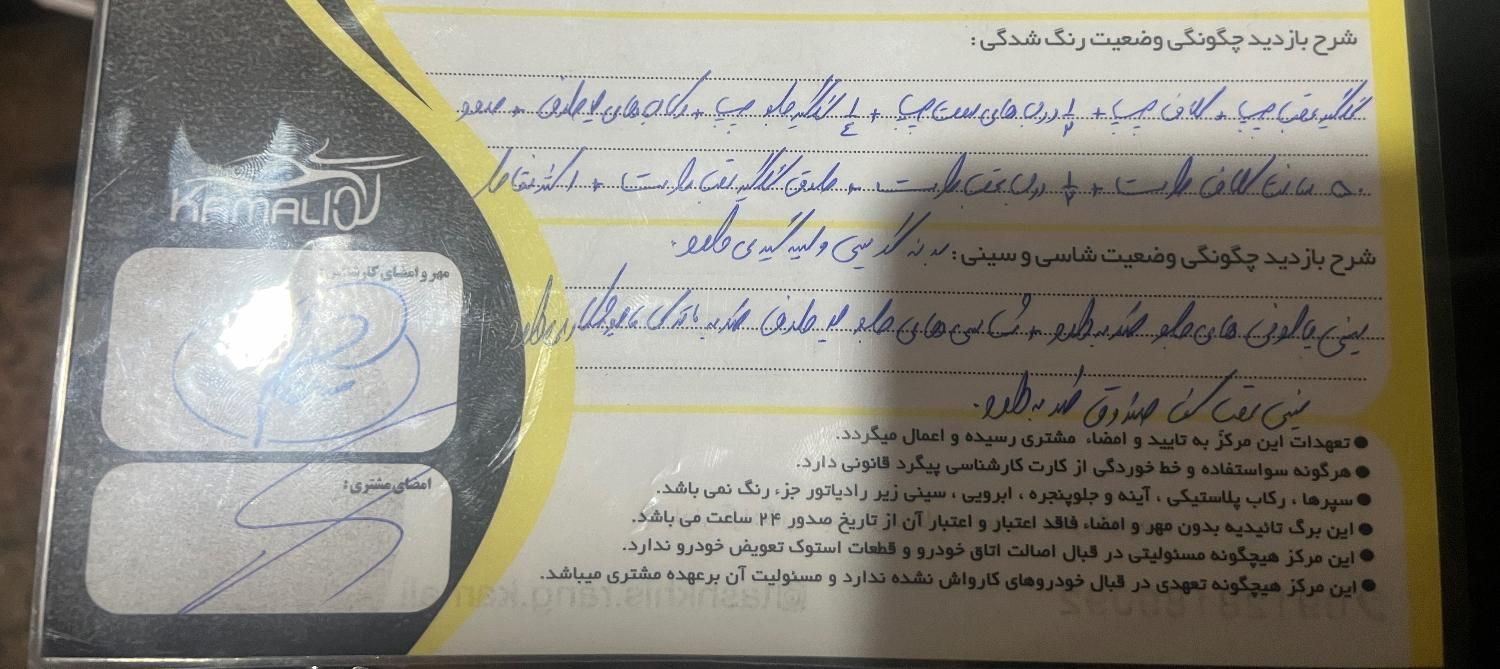 شرح بازدید چگونگی وضعیت رنگ شدگی:
گلگیر عقب چپ + کلاف چپ + ۱/۲ درب های سمت چپ + ۱/۴ گلگیر جلو چپ + رکاب های ۲ طرف + حدود
۵۰ سانت کلاف راست + ۱/۲ درب عقب راست + گلگیر عقب راست + اکثر نقاط
شرح بازدید چگونگی وضعیت شاسی و سینی:
سینی جلو ضربه دارد + شاسی های جلو ۲ طرف ضربه
سینی عقب کف صندوق ضربه دارد.
KAMALI
مهر و امضای کارشناس:
امضای مشتری:
● تعهدات این مرکز به تایید و امضاء مشتری رسیده و اعمال میگردد.
● هرگونه سواستفاده و خط خوردگی از کارت کارشناسی پیگرد قانونی دارد.
● سپرها ، رکاب پلاستیکی ، آینه و جلوپنجره ، ابرویی ، سینی زیر رادیاتور جزء رنگ نمی باشد.
● این برگ تائیدیه بدون مهر و امضاء فاقد اعتبار و اعتبار آن از تاریخ صدور ۲۴ ساعت می باشد.
● این مرکز هیچگونه مسئولیتی در قبال اصالت اتاق خودرو و قطعات استوک تعویض خودرو ندارد.
● این مرکز هیچگونه تعهدی در قبال خودروهای کارواش نشده ندارد و مسئولیت آن برعهده مشتری میباشد.